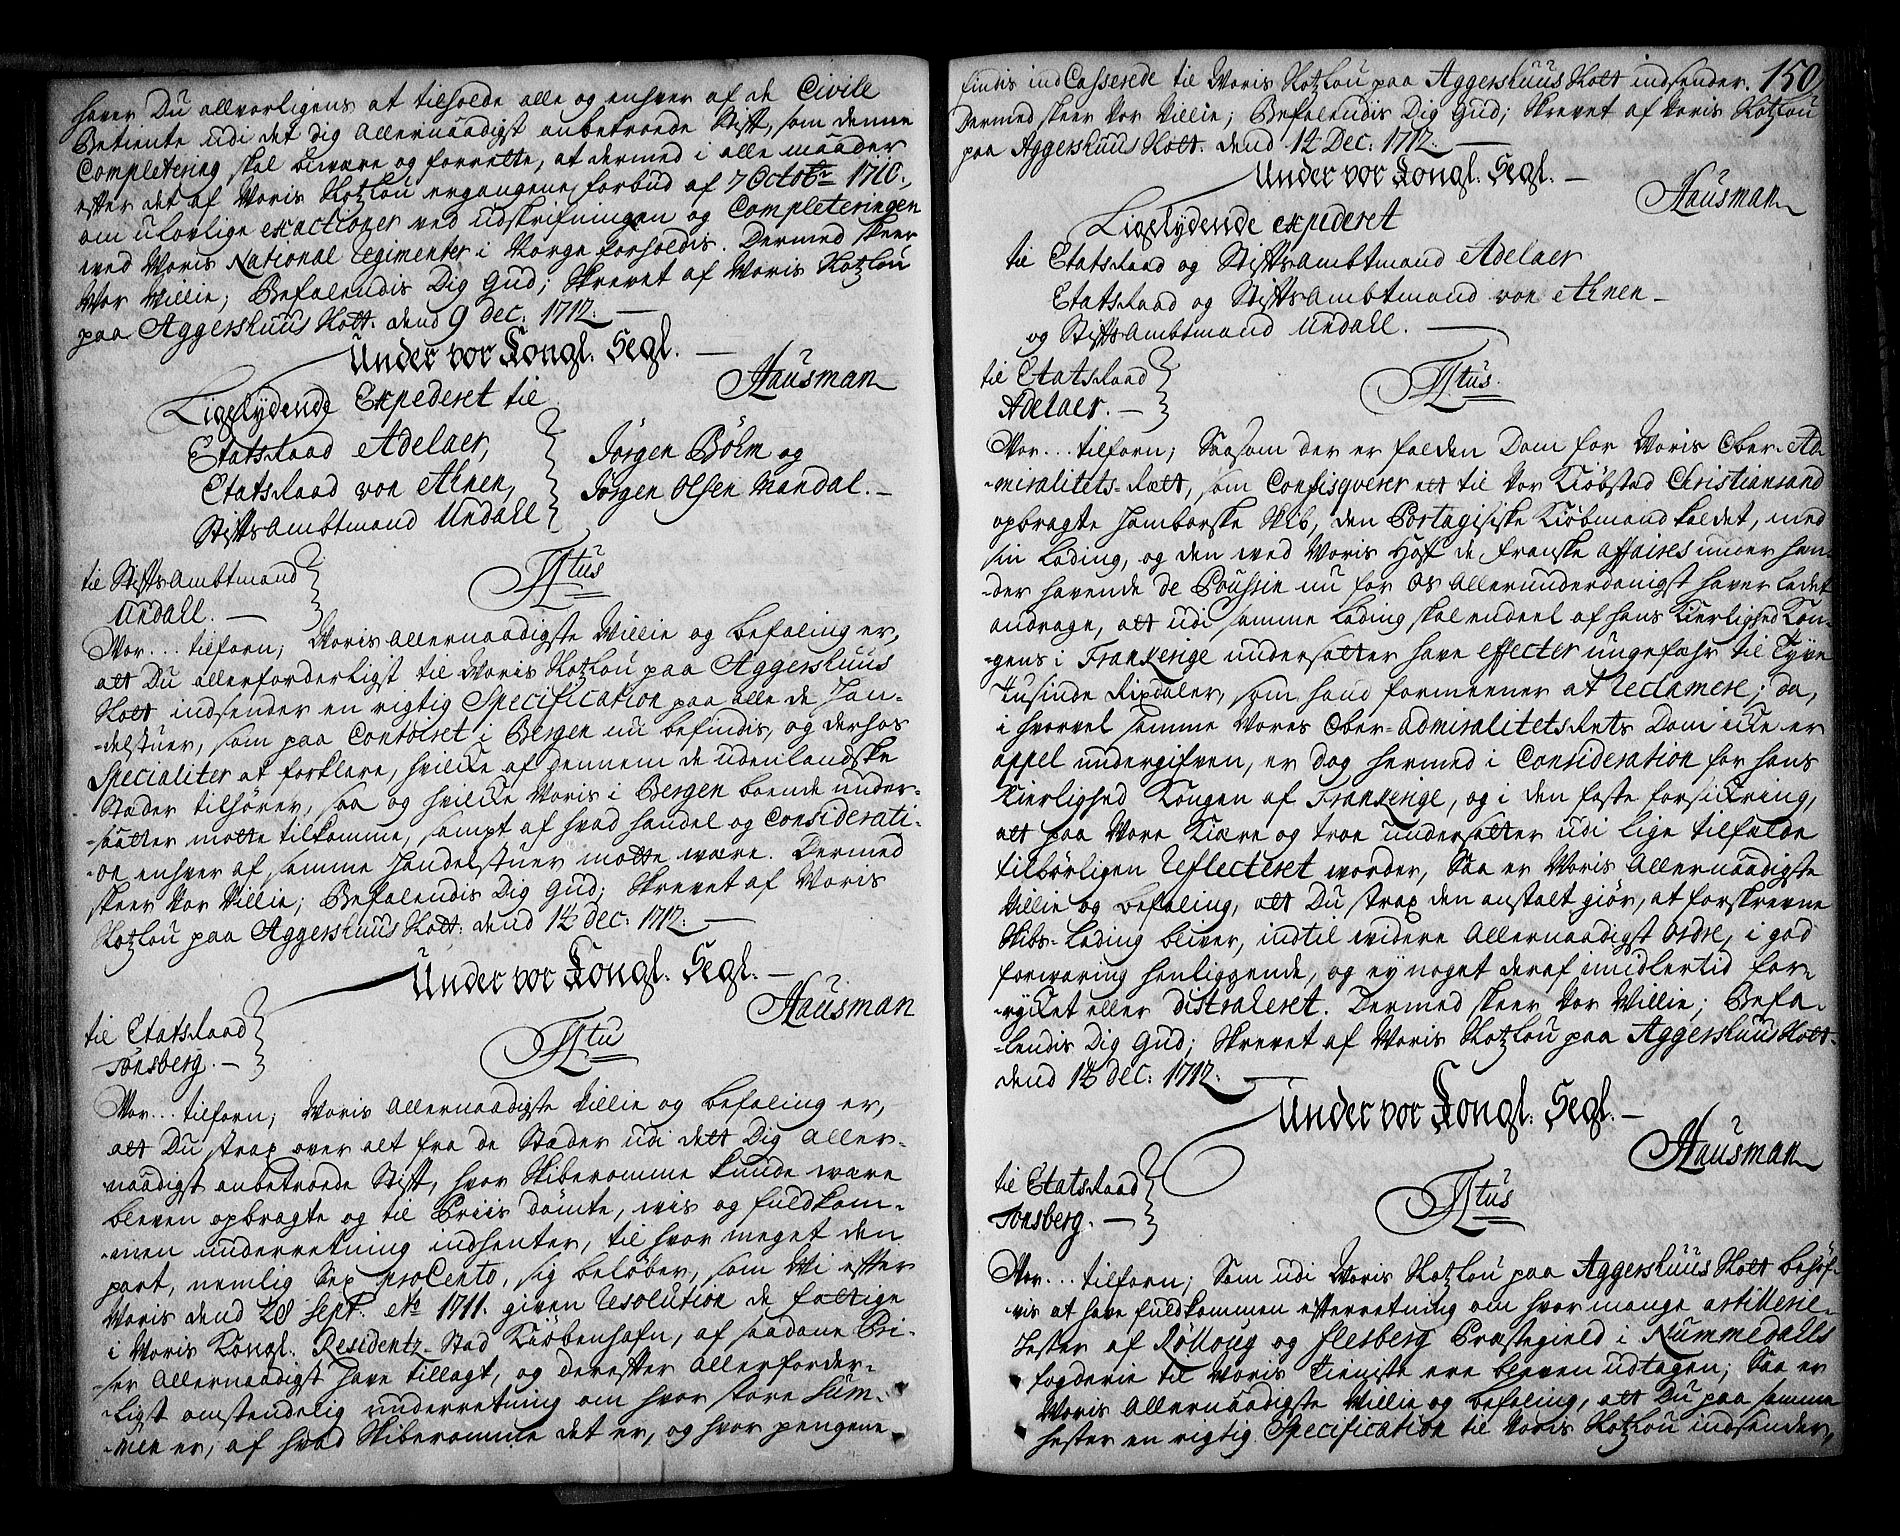 haver Du allvorligens at tilholde alle og enhver af de Civile
Betiente udi det dig allernaadigst anbetroede Stift, som denne
Completering skal bivære og forrette, at dermed i alle maader
efter det af Voris Slotzlou ergangene forbud af 7 Octobr 1710,
om ulovlige exactioner ved udskrifningen og Completeringen
ved Voris National Regimenter i Norge forholdis. Dermed skeer
Vor Villie; Befalendis Dig Gud; Skrevet af Voris Slotzlou
paa Aggershuus Slott. dend 9 dec: 1712. —
Under vor Kongl. Segl. —
Hausman
Ligelydende Expederet til
Etatsraad Adelaer,
Etatsraad von Ahnen,
StiftsAmbtmand Undall
Jørgen Bölm og
Jørgen Olsen Mandal. —
til StiftsAmbtmand
Undall. —
Ftus
Vor... tilforn; Voris allernaadigste Villie og befaling er,
att Du allerforderligst til Voris Slotzlou paa Aggershuus
Slott indsender en rigtig Specification paa alle de Han-
-delstuer, som paa Contoiret i Bergen nu befindis, og derhos
Specialiter at forklare, hvilke af gennem de udenlandske
Stæder tilhører, saa og hvilke Voris i Bergen boende under-
-saatter motte tilkomme, sampt af hvad handel og Considerati-
-on enhver af samme Handelstuer motte være. Dermed
skeer Vor Villie; Befalendis Dig Gud; Skrevet af Voris
Slotzlou paa Aggershuus Slott: dend 14 dec: 1712. —
Under vor Kongl. Segl. —
Hausman
til Etatsraad
Tonsberg. —
Ftu
Vor... tilforn; Voris Allernaadigste Villie og befaling er,
att Du strax over alt fra de Stæder udi dett Dig aller-
-naadigst anbetroede Stift, hvor Skiberomme kunde være
bleven opbragte og til Priis dömte, vis og fuldkom-
-men underretning indhenter, til hvor meget den
part, nemlig Sex proCento, sig beløber, som Vi efter
Voris dend 28 Sept. Ao 1711. given Resolution de fattige
i Voris Kongl. Residentz-Stad Kiøbenhafn, af saadane Pri-
-ser Allernaadigst have tillagt, og derefter Allerforder-
-ligst omstendelig underretning om hvor store Sum-
-men er, af hvad Skiberomme det er, og hvor pengene
findis indCasserede til Voris Slotzlou paa Aggershuus Slott indsender. 150
Dermed skeer Vor Villie; Befalendis Dig Gud; Skrevet af Voris Slotzlou
paa Aggershuus Slott. dend 14 Dec: 1712. —
Under vor Kongl. Segl. —
Hausman
Ligelydende expederet
til Etatsraad og StiftsAmbtmand Adelaer
Etatsraad og StiftsAmbtmand von Ahnen —
og StiftsAmbtmand Undall. —
til Etatsraad
Adelaer. —
Ftus.
Vor... tilforn; Saasom der er falden Dom for Voris Ober-Ad-
-miralitets-Rætt, som Confisqverer ett til Vor Kiøbstad Christiansand
opbragte Hamborske Skib, den Portugisiske Kiøbmand kaldet, med
sin Lading, og den ved Voris Hof de franske affaires under hæn-
-der havende de Poussin nu for Os Allerunderdanigst haver ladet
andrage, att udi samme Lading skal endeel af hans Kierlighed Kon-
-gens i Frankerige undersatter have effecter ungefæhr til Tyve
Tusinde Rixdaler, som hand formeener at Reclamere; da,
i hvorvel samme Vores Ober-admiralitetsRets Dom icke er
appel undergifven, er Dog hermed i Consideration for hans
Kierlighed Kongen af Frankerige, og i den faste forsickring,
att paa Vore Kiære og troe undersatter udi lige tilfælde
tilbörligen Reflecteret worder, Saa er Voris Allernaadigste
Villie og befaling, att Du strax den anstalt giör, at forskrevne
Skibs-Lading bliver, indtil widere Allernaadigst Ordre, i god
forwaring henliggende, og ey noget deraf imidlertid for-
-rycket eller distraheret. Dermed skeer Vor Villie; Befa-
-lendis Dig Gud; Skrevet af Voris Slotzlou paa Aggershuus Slott.
dend 14 dec: 1712. —
Under vor Kongl. Segl. —
Hausman
til Etatsraad
Tonsberg. —
Ftus
Vor... tilforn; Som udi Voris Slotzlou paa Aggershuus Slott behöf-
-vis at have fuldkommen efterretning om hvor mange artillerie-
-Hester af Rölloug og flesberg Præstegield i Nummedahls
fogderie til Voris Tieniste ere bleven udtagen; Saa er
Voris Allernaadigste Villie og befaling, att Du paa samme
hester en rigtig Specification til Voris Slotzlou indsender,